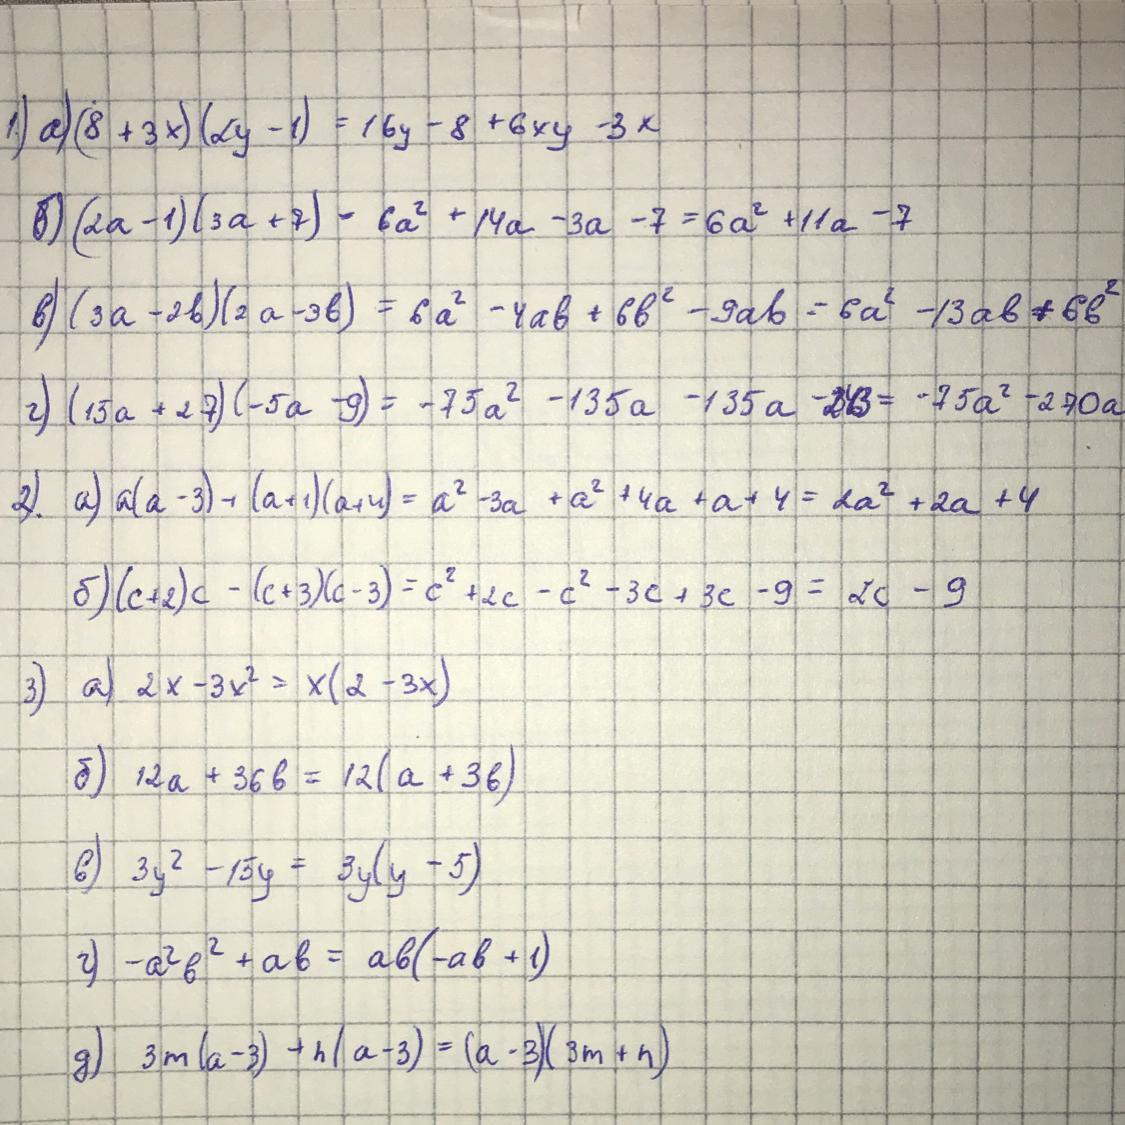 1) а) (8 + 3x)(2y - 1) = 16y - 8 + 6xy - 3x
б) (2a - 1)(3a + 7) - 6a² + 14a - 3a - 7 = 6a² + 11a - 7
в) (3a - 2b)(2a - 3b) = 6a² - 4ab + 6b² - 9ab = 6a² - 13ab + 6b²
г) (15a + 27)(-5a - 9) = -75a² - 135a - 135a - 243 = -75a² - 270a
2). а) a(a - 3) + (a+1)(a+4) = a² - 3a + a² + 4a + a + 4 = 2a² + 2a + 4
б) (c+2)c - (c+3)(c-3) = c² + 2c - c² - 3c + 3c - 9 = 2c - 9
3) а) 2x - 3x² = x(2 - 3x)
б) 12a + 36b = 12(a + 3b)
в) 3y² - 15y = 3y(y - 5)
г) -a²b² + ab = ab(-ab + 1)
д) 3m(a-3) + n(a-3) = (a-3)(3m+n)